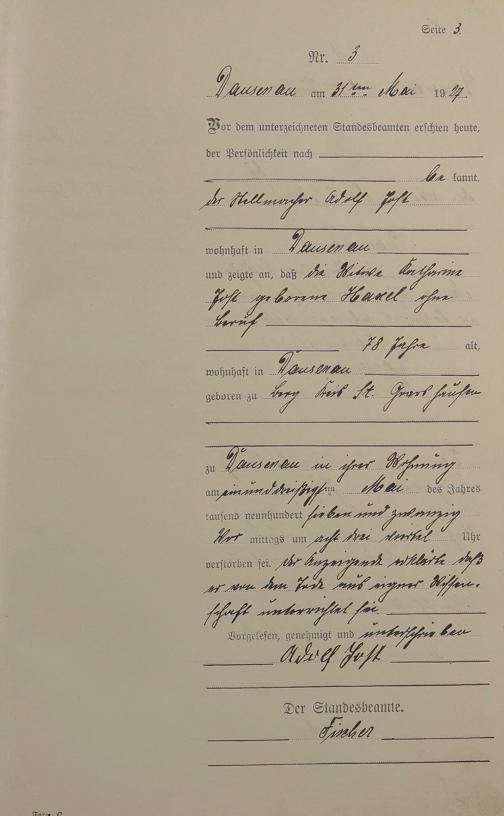 Seite 3.
Nr. 3
Dausenau am 31ten Mai 1927.
Vor dem unterzeichneten Standesbeamten erschien heute,
der Persönlichkeit nach
be kannt,
der Stellmacher Adolf Jost
wohnhaft in Dausenau
und zeigte an, daß die Witwe Katharine
Jost geborene Hanel ohne
Beruf
78 Jahre alt,
wohnhaft in Dausenau
geboren zu Berg Kreis St. Goarshausen
zu Dausenau in ihrer Wohnung
am einunddreißigsten Mai des Jahres
tausend neunhundert sieben und zwanzig
Vor mittags um acht drei viertel Uhr
verstorben sei. Der Anzeigende erklärte daß
er von dem Tode aus eigner Wissen-
schaft unterrichtet sei.
Vorgelesen, genehmigt und unterschrieben
Adolf Jost
Der Standesbeamte.
Fischer